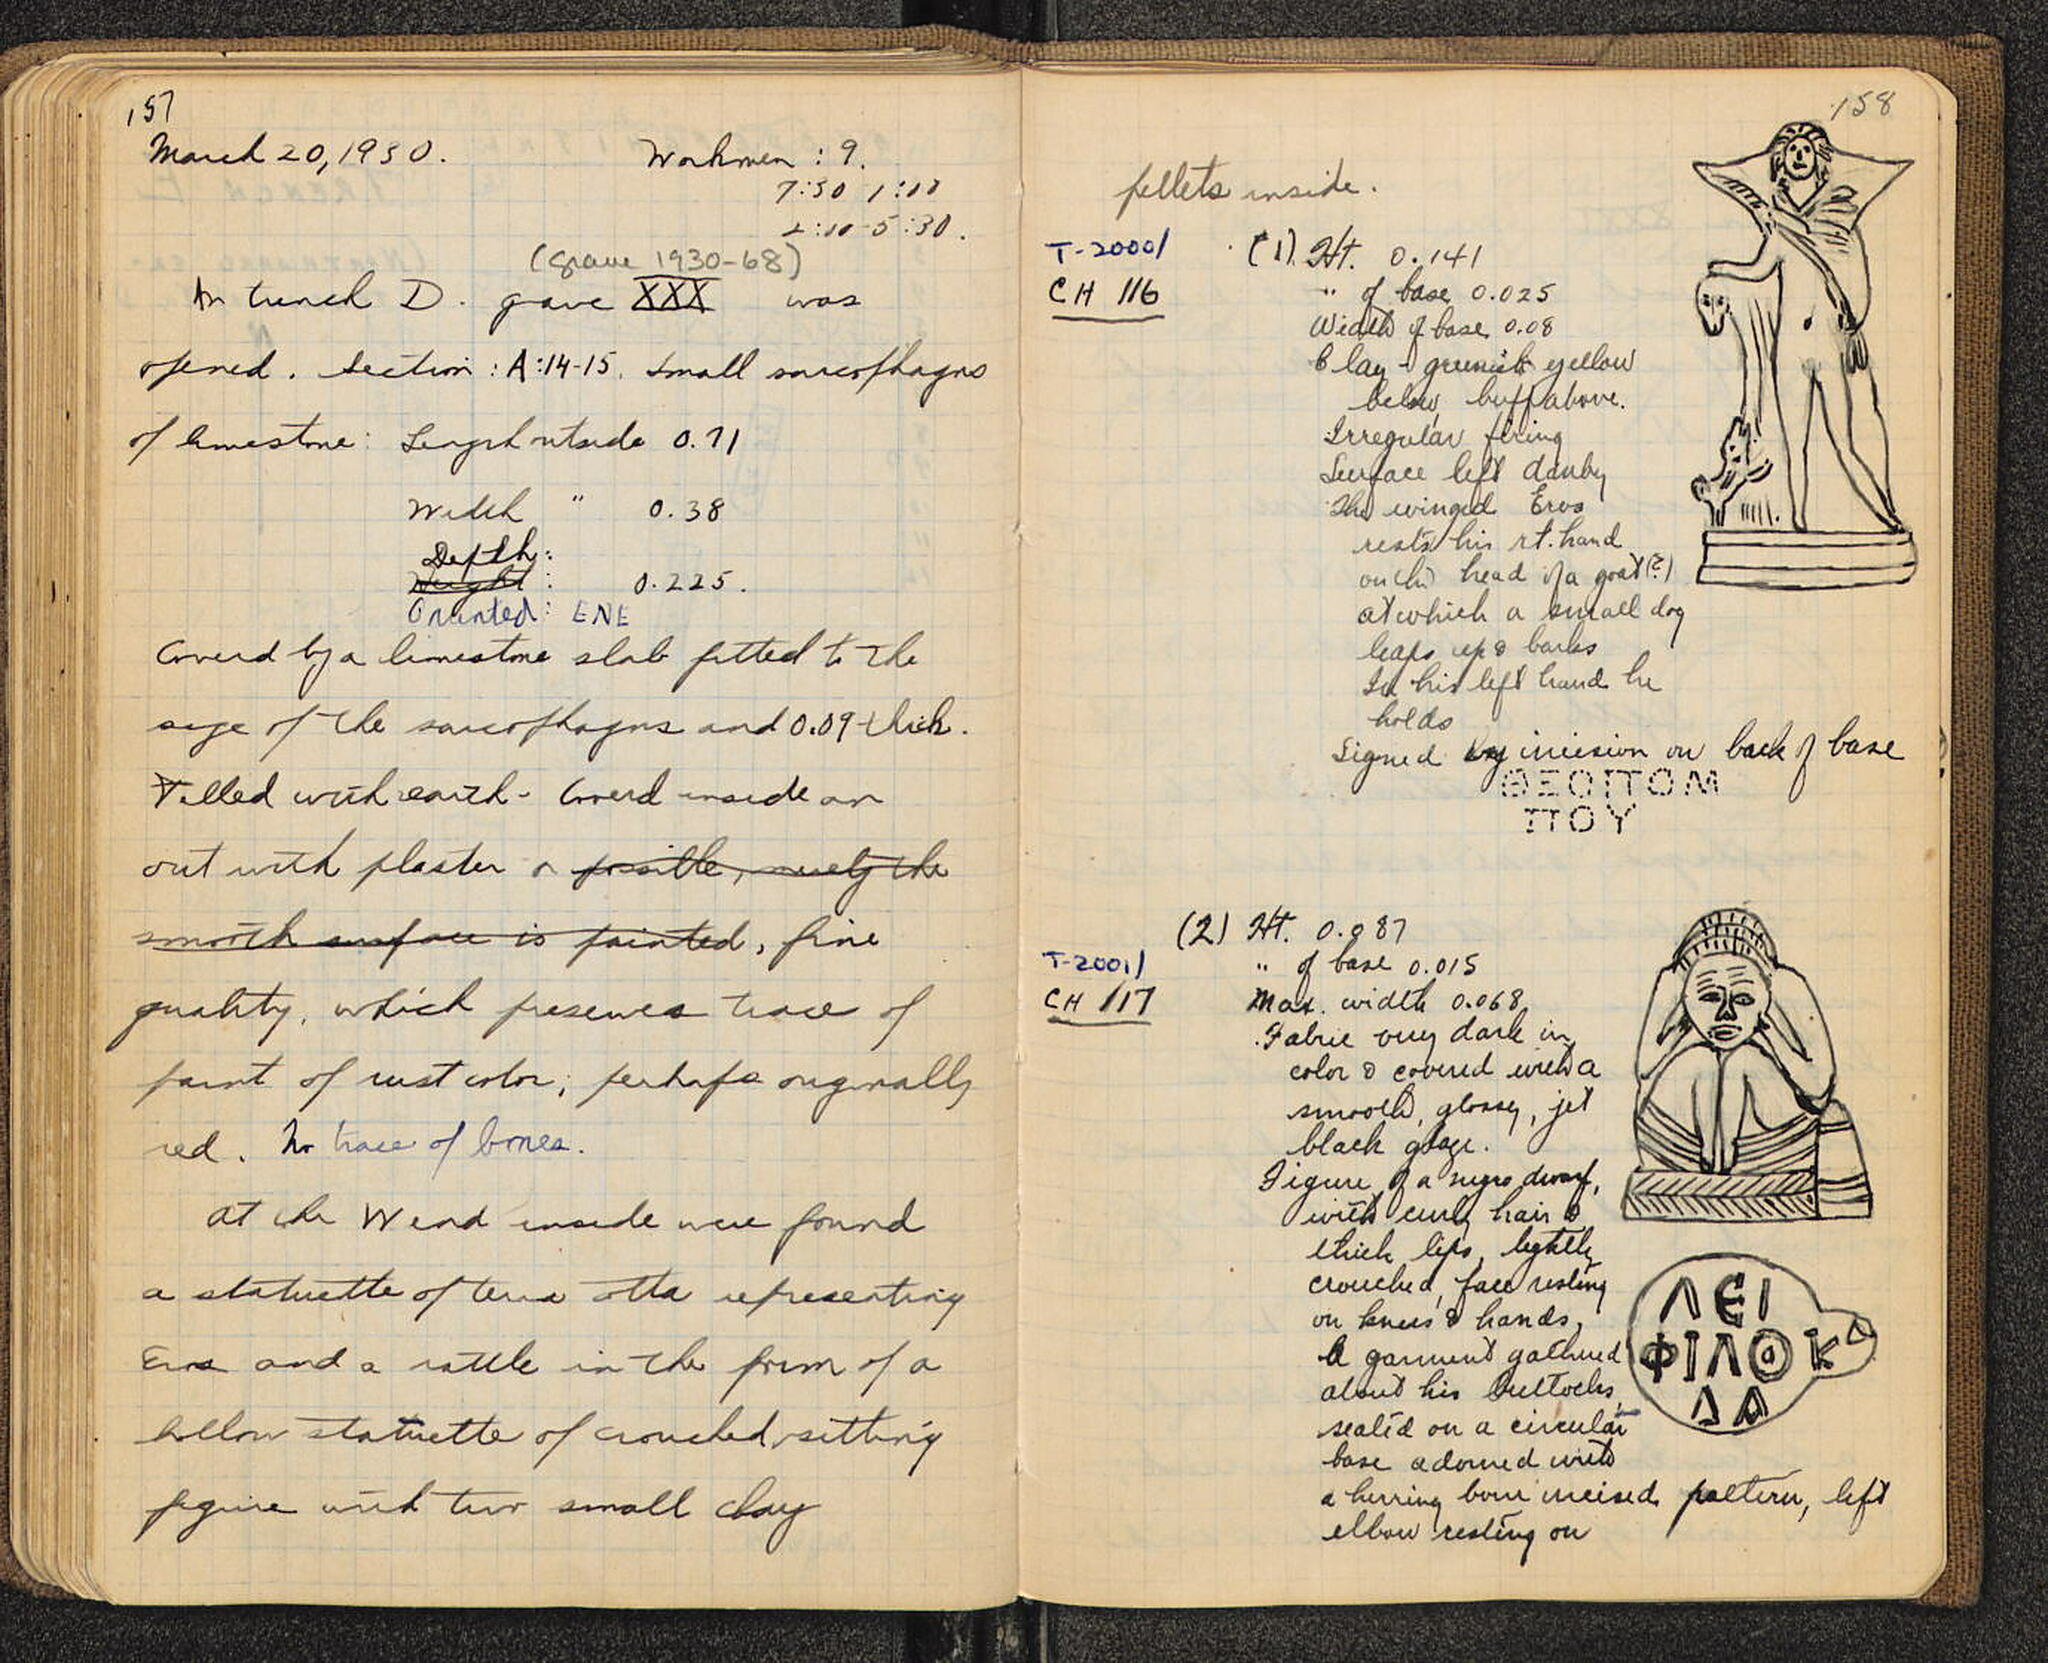 157
March 20, 1930. Workmen : 9.
7:30 1:00
2:00-5:30.
(grave 1930-68)
In trench D. grave XXX was
opened. Section : A:14-15. Small sarcophagus
of limestone: Length outside 0.71
Width " 0.38
Depth:
Height : 0.225.
Oriented: ENE
Covered by a limestone slab fitted to the
size of the sarcophagus and 0.09 thick.
Filled with earth- Covered inside an
out with plaster or possible, merely the
smooth surface is painted, fine
quality, which preserves trace of
paint of rust color, perhaps originally
red. No trace of bones.
At the W end inside were found
a statuette of terra cotta representing
Eros and a rattle in the form of a
hollow statuette of crouched, sitting
figure with two small clay
158
pellets inside.
T-2000/
CH 116
(1). Ht. 0.141
" of base 0.025
Width of base 0.08
Clay - greenish yellow
below, buff above.
Irregular firing
Surface left dauby
The winged Eros
rests his rt. hand
on the head of a goat(?)
at which a small dog
leaps up & barks
In his left hand he
holds
Signed by incision on back of base
ΘΕΟΠΟΜ
ΠΟΥ
T-2001/
CH 117
(2) Ht. 0.087
" of base 0.015
Max. width 0.068
Fabric very dark in
color & covered with a
smooth, glossy, jet
black glaze.
Figure of a negro dwarf,
with curly hair &
thick lips, lightly
crouched, face resting
on knees & hands,
A garment gathered
about his buttocks,
seated on a circular
base adorned with
a herring bone incised pattern, left
elbow resting on
ΛΕΙ
ΦΙΛΟΚ
ΔΑ